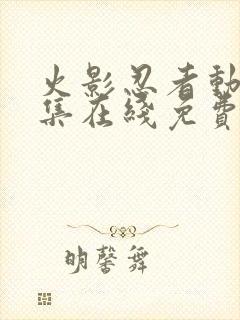 火影忍者動
集在綫免費
明馨舞